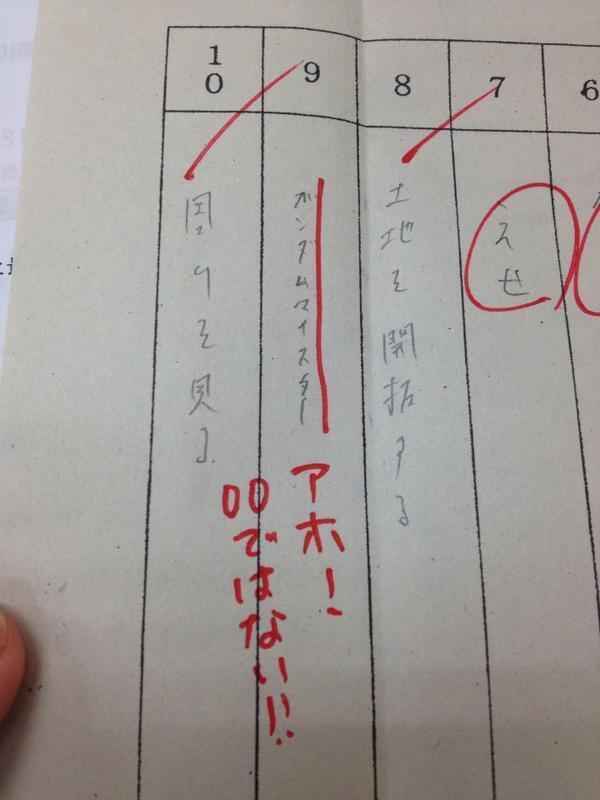 6
7
えせ
8
土地を開拓する
9
ガンダムマイスター
アホー!
00ではない!!
10
周りを見る